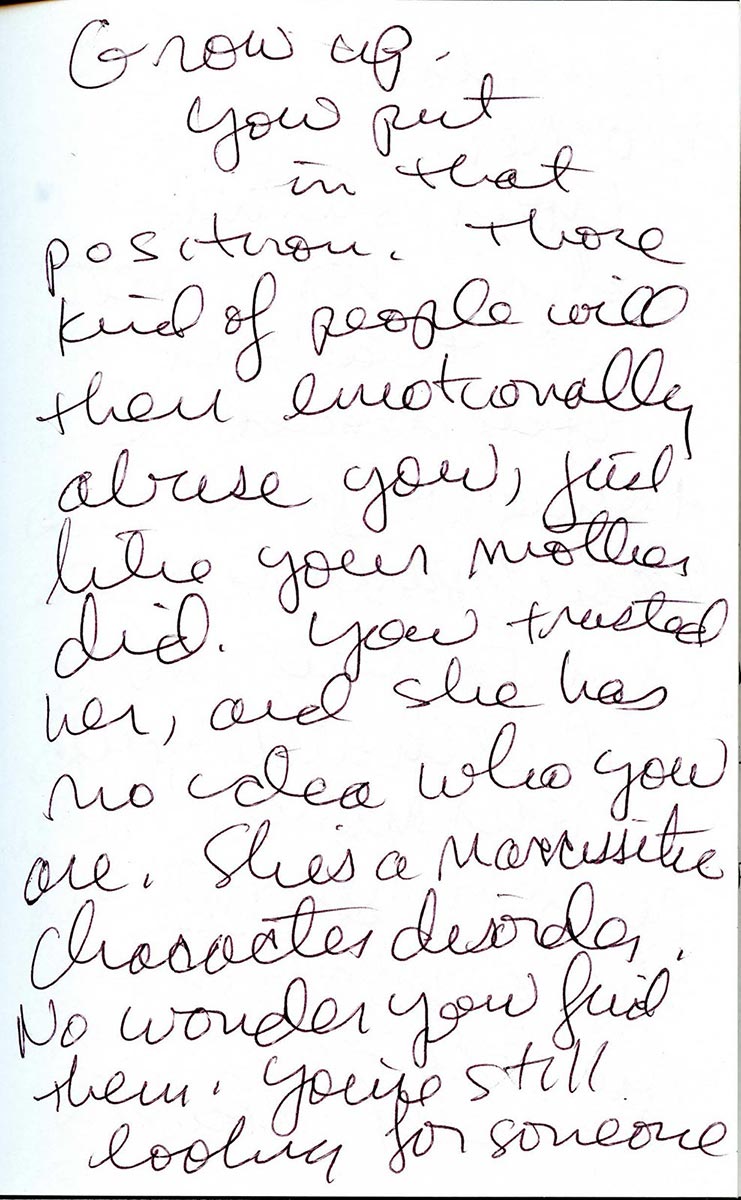 Grow up.
You put
in that
position. Those
kind of people will
then emotionally
abuse you, just
like your mother
did. You trusted
her, and she has
no idea who you
are. She's a Narcissitic
Character disorder.
No wonder you find
them. You're still
looking for someone